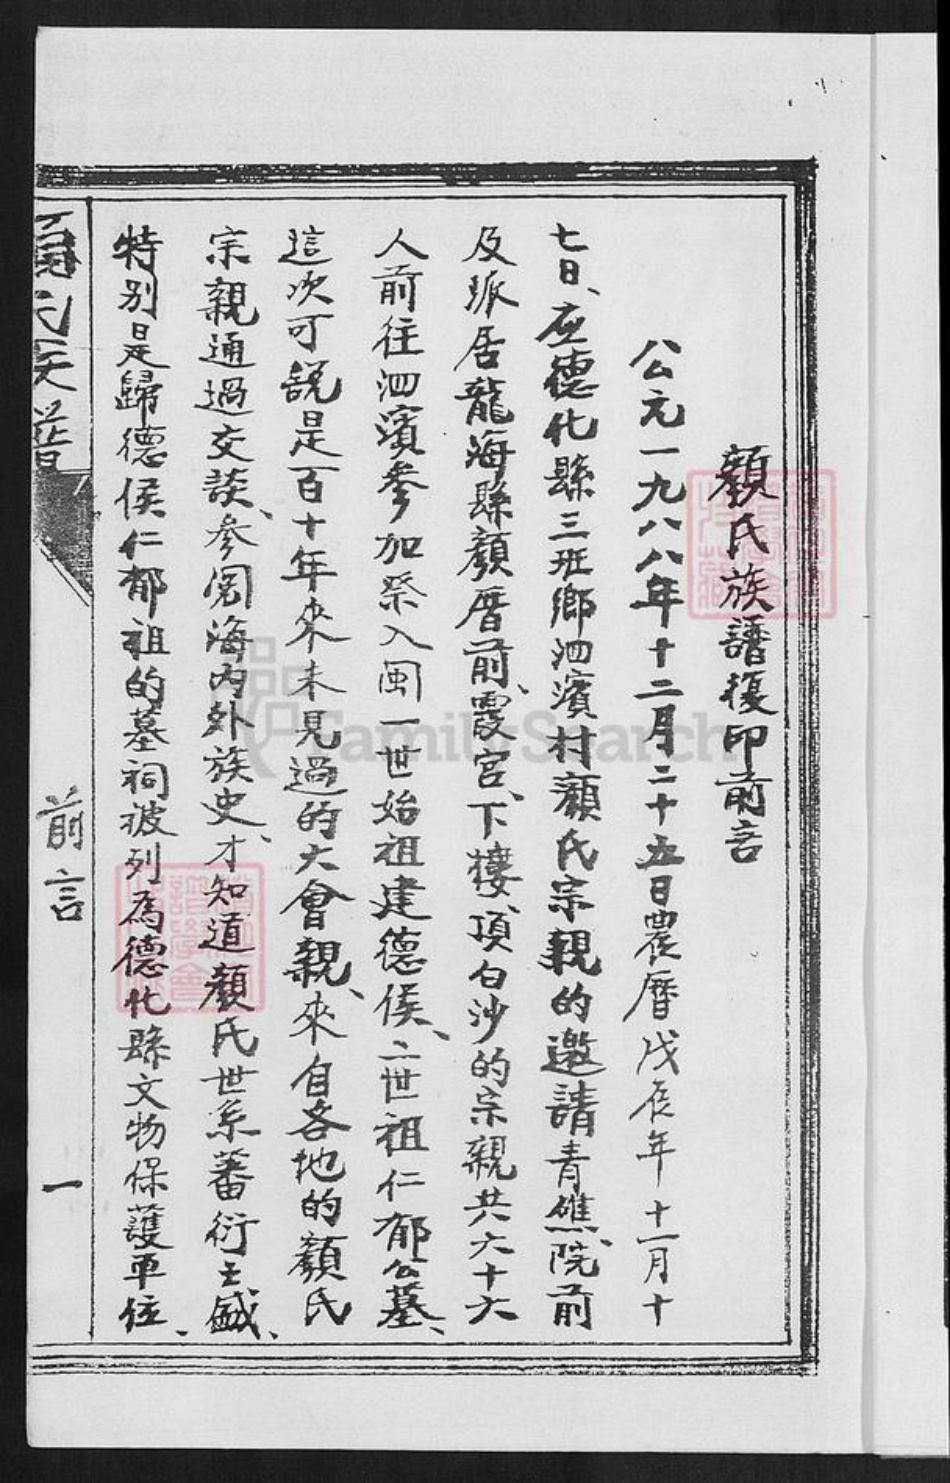 顏氏族譜復印前言
公元一九八八年十二月二十五日農曆戊辰年十一月十
七日、应德化縣三班鄉泗濱村顏氏宗親的邀請青礁、院前
及派居龍海縣顏厝前、霞宮、下樓、頂白沙的宗親共六十六
人前往泗濱參加祭入閩一世始祖建德侯、二世祖仁郁公墓、
這次可說是百十年來未見過的大會親、來自各地的顏氏
宗親通過交談、參閱海內外族史、才知道顏氏世系蕃衍之盛、
特別是歸德侯仁郁祖的墓祠被列為德化縣文物保護单位、
氏族譜
前言
一
FamilySearch